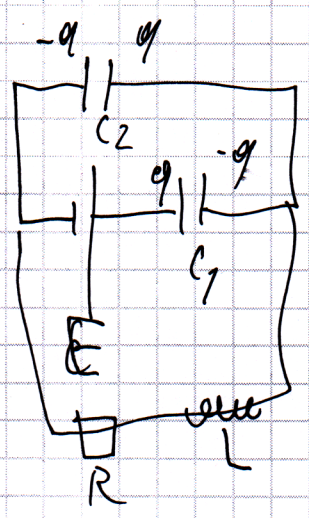 -q q
C2
q -q
C1
E
R
L